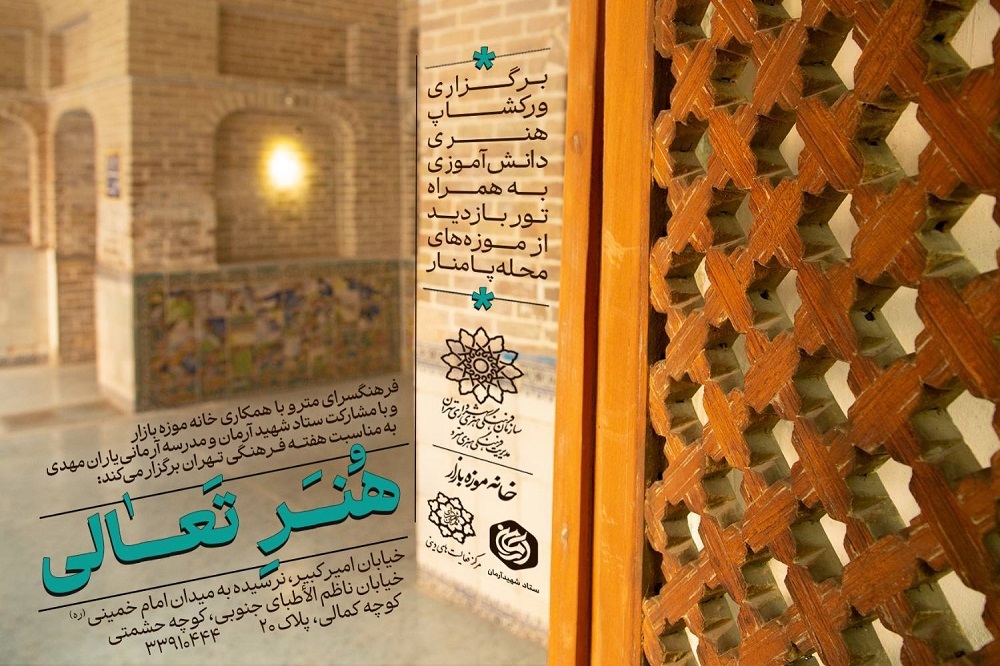 برگزاری
ورکشاپ
هنری
دانش‌آموزی
به همراه
تور بازدید
از موزه‌های
محله پامنار
سازمان فرهنگی هنری شهرداری تهران
مدیریت فرهنگی هنری مترو
خانه موزه بازار
مرکز فعالیت‌های دینی
ستاد شهید آرمان
فرهنگسرای مترو با همکاری خانه موزه بازار
و با مشارکت ستاد شهید آرمان و مدرسه آرمانی یاران مهدی
به مناسبت هفته فرهنگی تهران برگزار می‌کند:
هُنَرِ تَعالی
خیابان امیر کبیر، نرسیده به میدان امام خمینی (ره)
خیابان ناظم الأطبای جنوبی، کوچه حشمتی
کوچه کمالی، پلاک ۲۰
۳۳۹۱۰۴۴۴